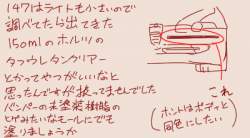 147はライトも小さいので
調べてたら出てきた
150mlのホルツの
タフウレタンクリアー
とかってやつがいいなと
思ったんですが売ってませんでした
バンパーの未塗装樹脂の
とりみたいなモールにでも
塗りましょうか
これ
(ホントはボディと
同色にしたい)